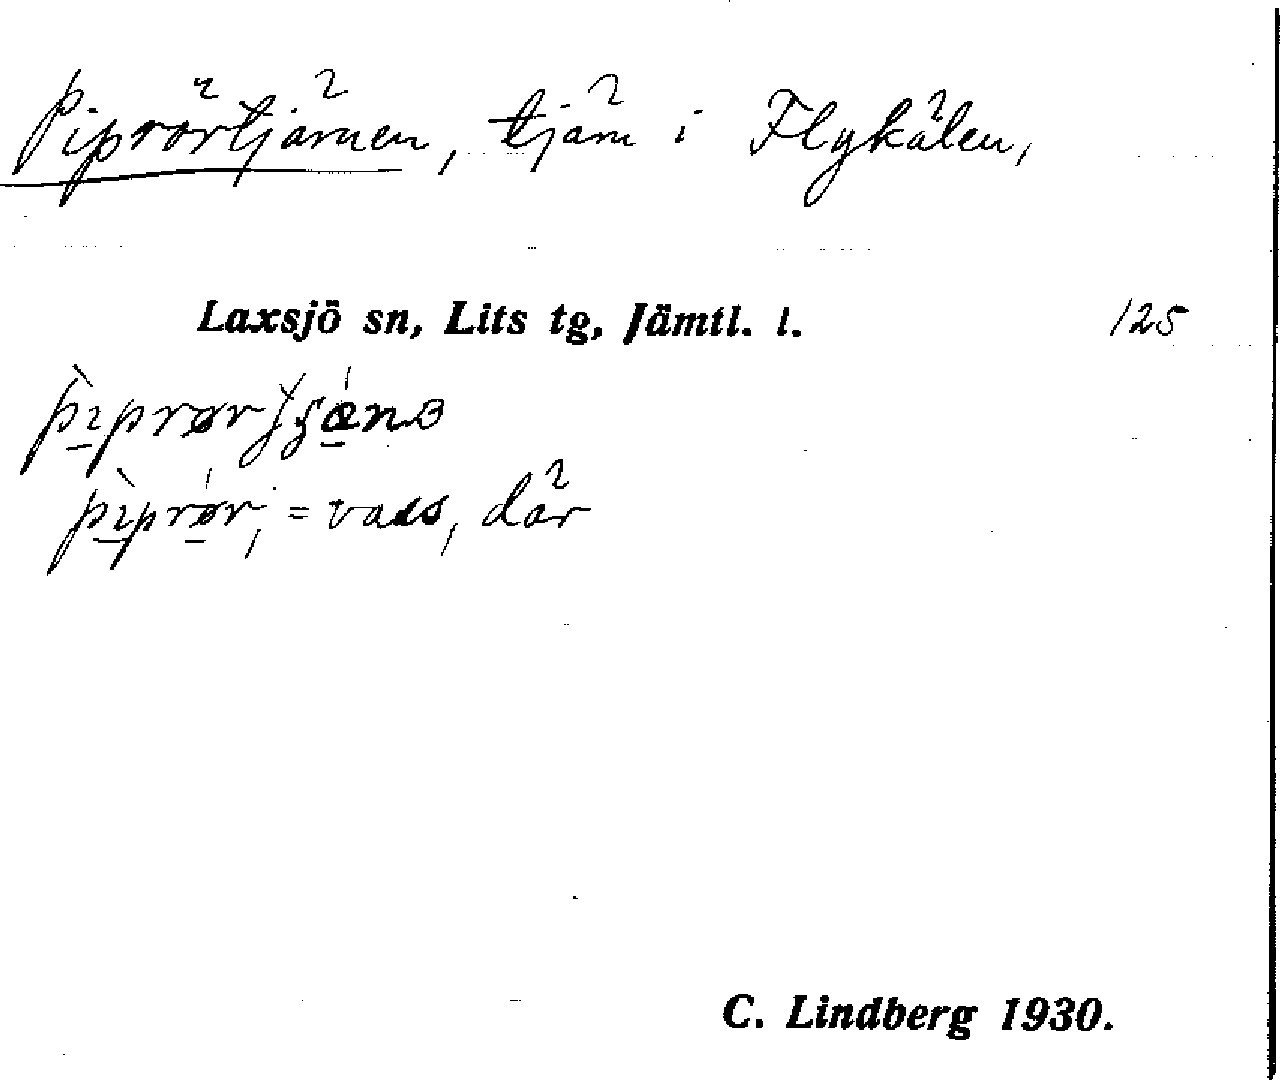 Piprörtjärnen, tjärn i Flykälen,
Laxsjö sn, Lits tg, Jämtl. l. 125
= vass, där
C. Lindberg 1930.